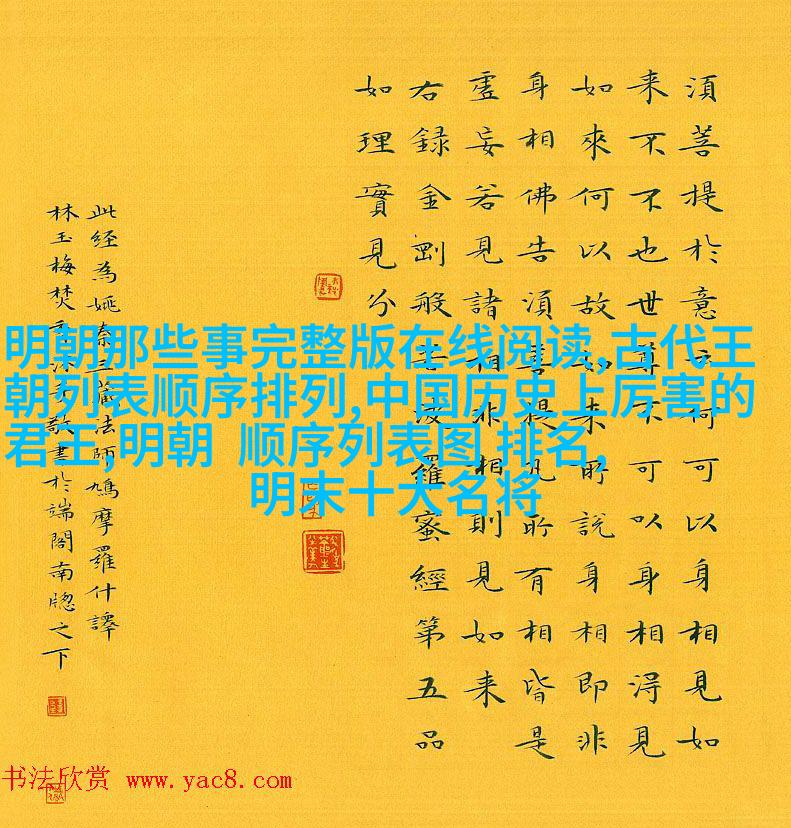 須菩提於意云何可以身相見如
来不不也世尊不可以身相得見
如來何以故如来所說身相即非
身相佛告須菩提凡所有相皆是
虛妄若見諸相非相則見如来
右錄金剛般若波羅蜜經第五品
如理實見分
此経為姚秦三藏法師鳩摩羅什譯
林玉梅焚香沐手敬書於端閣南牕之下
明朝那些事完整版在线阅读,古代王
朝列表顺序排列,中国历史上厉害的
君王,明朝 顺序列表图 排名,
明末十大名将
书法欣赏 www.yac8.com